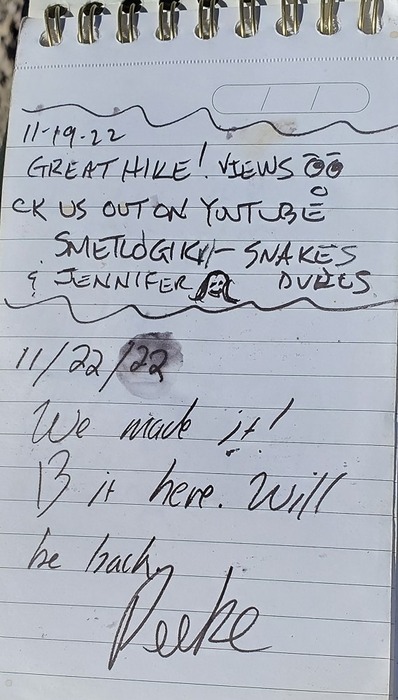 11-19-22
GREAT HIKE! VIEWS
CK US OUT ON YOUTUBE
SNAKES
& JENNIFER DUKES
11/22/22
We made it!
B it here. Will
be back